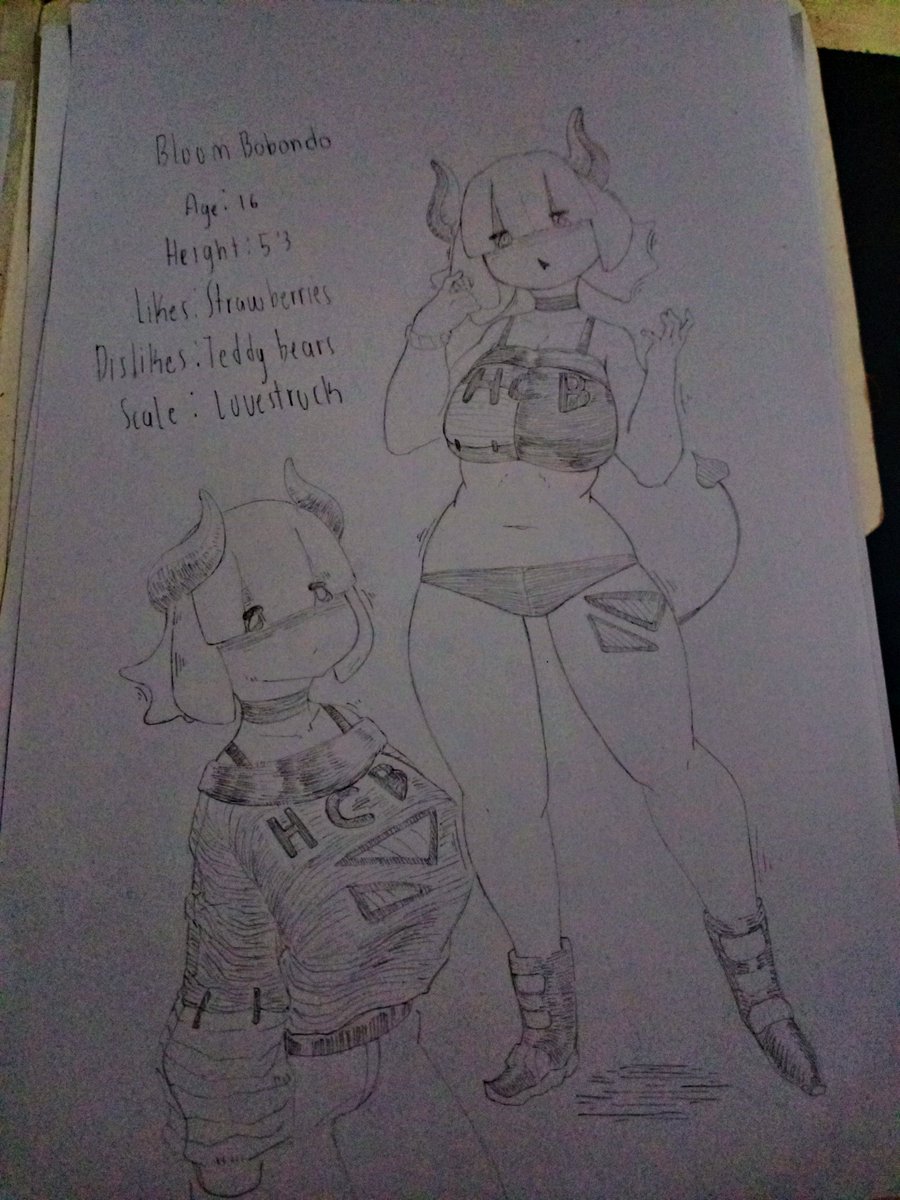 Bloom Bobondo
Age: 16
Height: 5'3
Likes: Strawberries
Dislikes: Teddy bears
Scale: Lovestruck
HCB
HCB